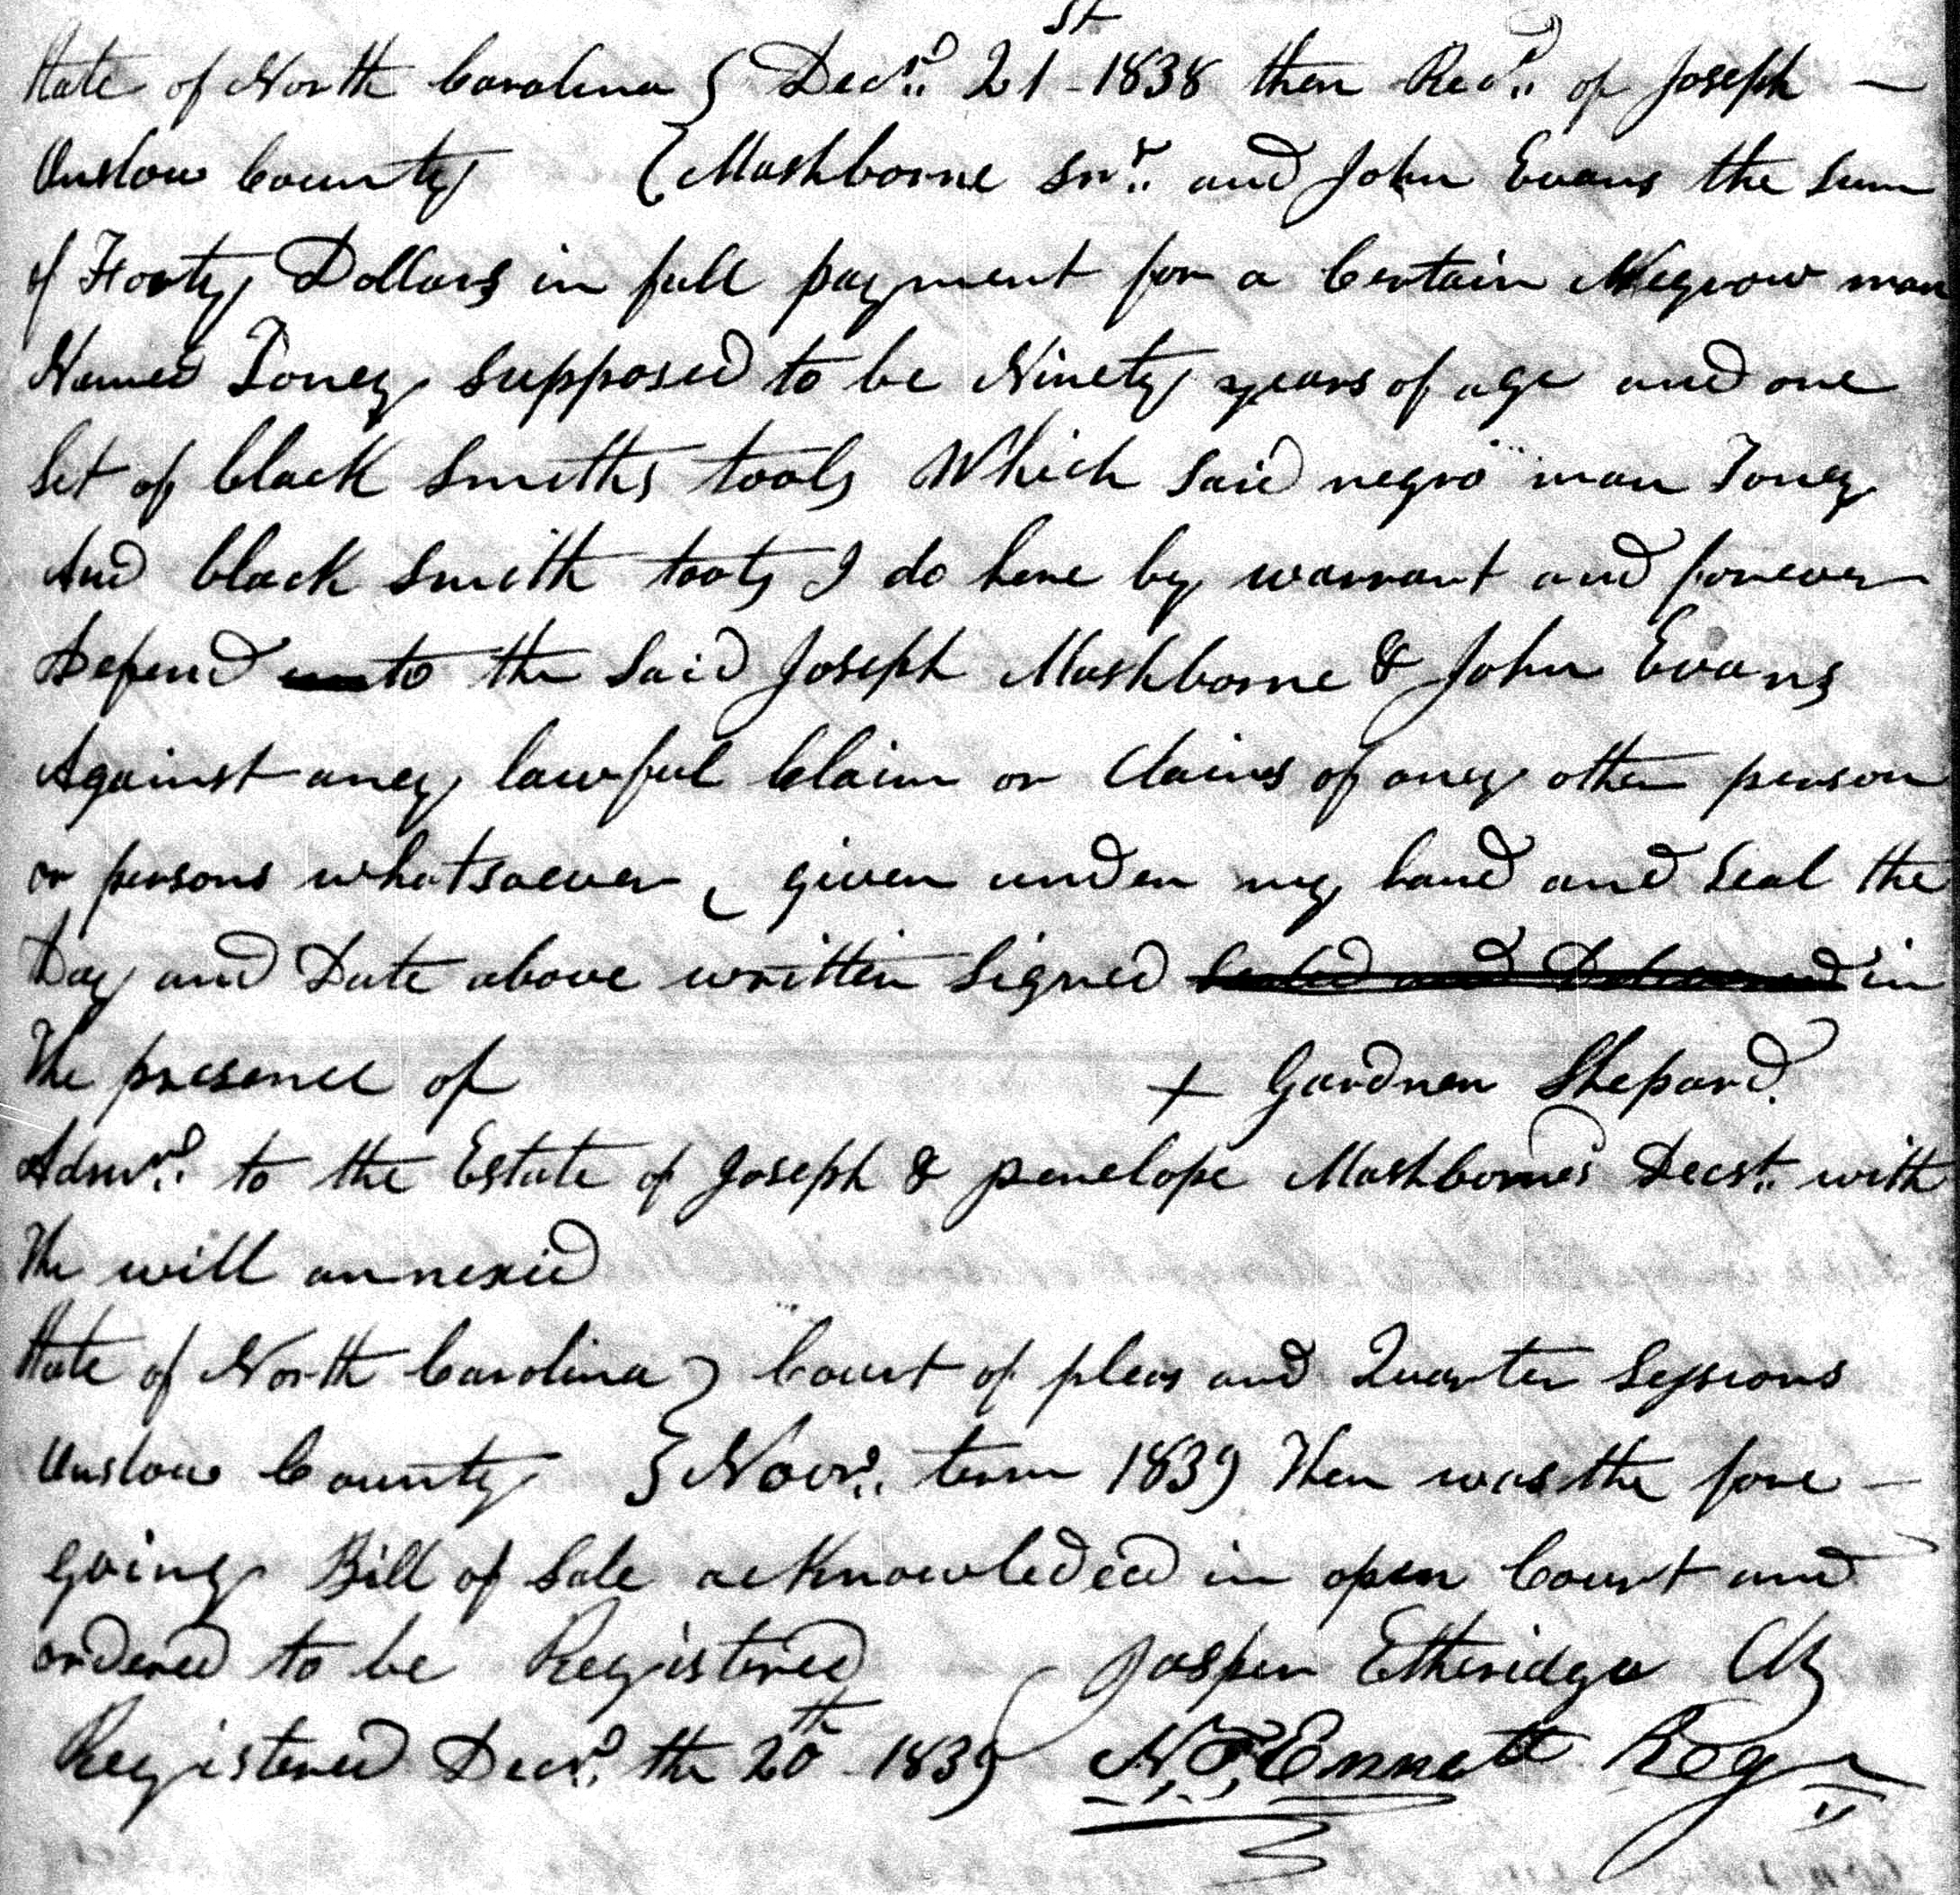 State of North Carolina } Decr.. 21st 1838 then Recd.. of Joseph —
Onslow County { Mashborne Snr.. and John Evans the Sum
of Fforty Dollars in full payment for a Certain Negrow man
Named Toney Supposed to be Ninety years of age and one
Set of black Smiths tools Which Said negro man Toney
And black Smith tools I do here by warrant and forever
Defend unto the Said Joseph Mashborne & John Evans
Against aney lawful Claim or Claims of aney other person
or persons whatsoever, given under my hand and Seal the
Day and Date above written Signed Sealed and Delivered in
The presence of + Gardner Shepard
Admr.. to the Estate of Joseph & penelope Mashborne's Decst.. with
The will annexied
State of North Carolina } Court of pleas and Quarter Sessions
Onslow County } Novr.. term 1839 Then was the fore —
going Bill of Sale acknowleded in open Court and
ordered to be Registered Jasper Etheridge Clk
Registered Decr. the 20th 1839 N. F. Ennett Regr